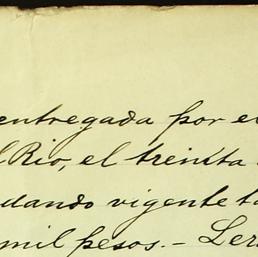 entregada por e
l Rio, el treinta
dando vigente t
mil pesos.- Ler